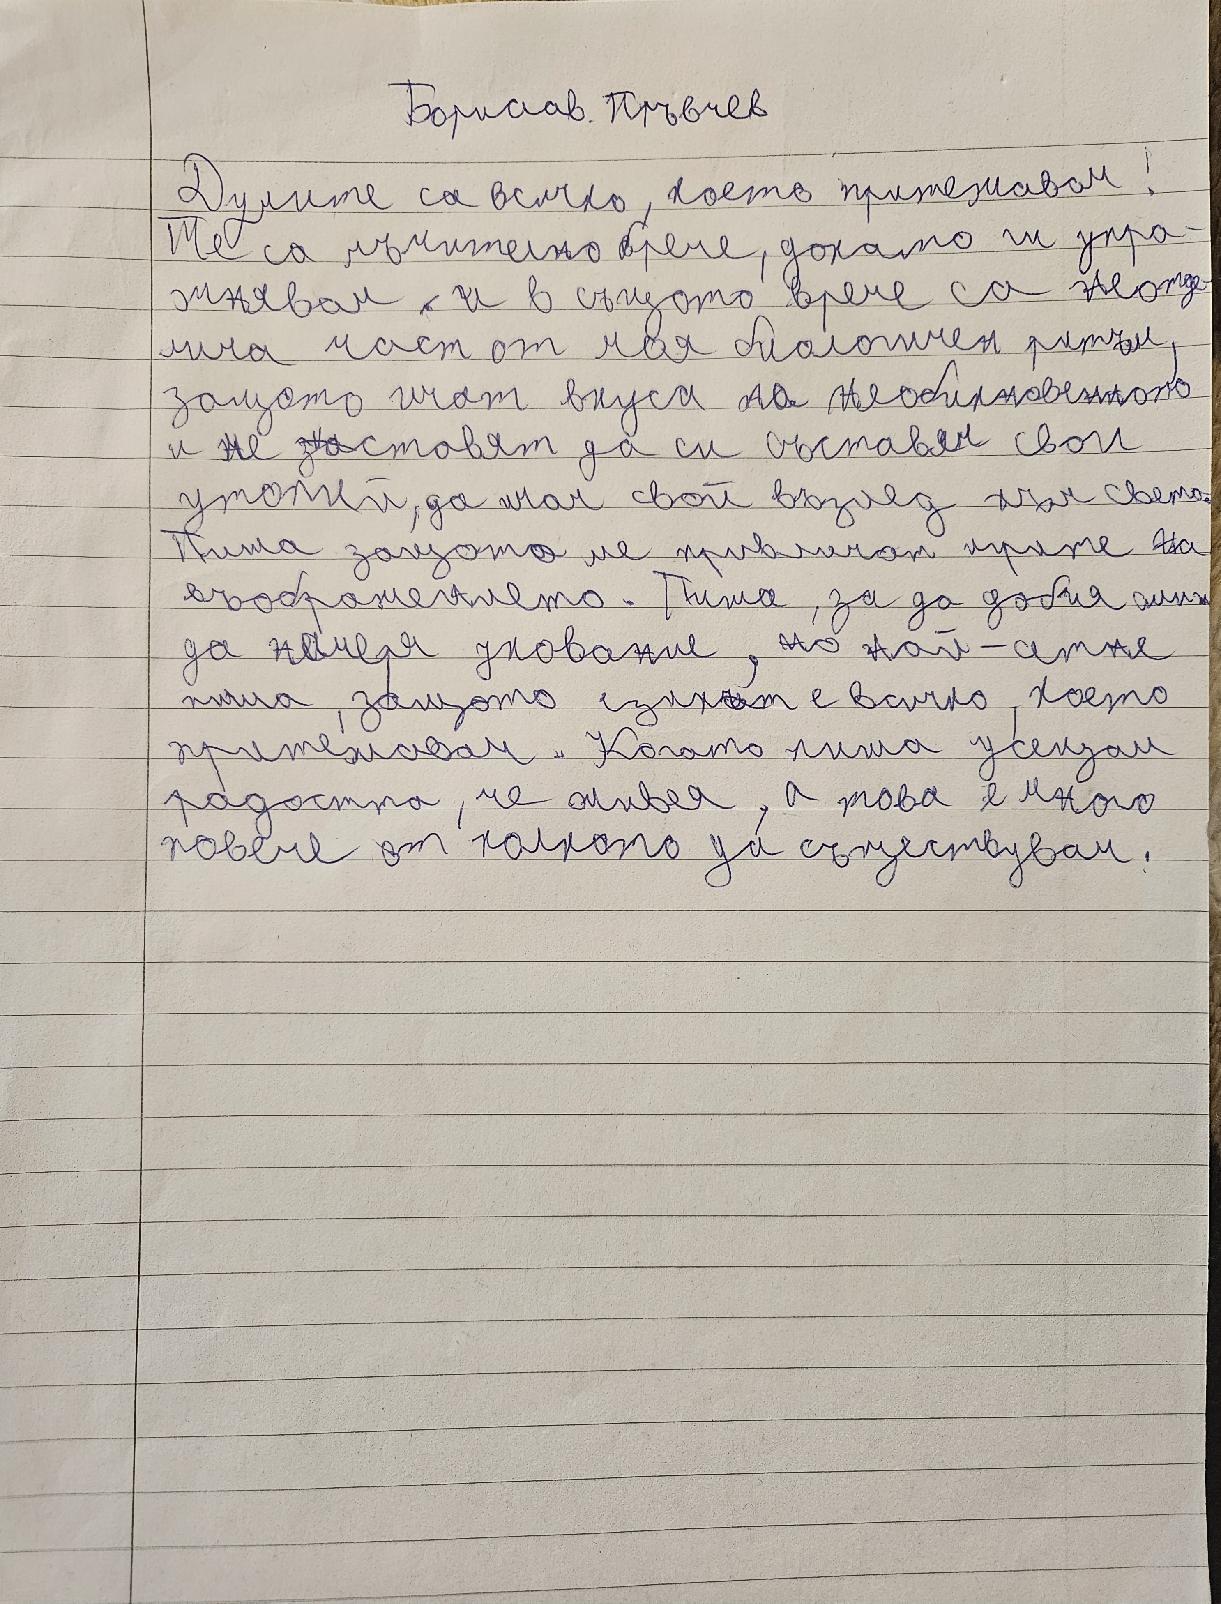 Борислав Пръвчев
Думите са всичко, което притежавам!
Те са мъчително бреме, докато ги упра-
жнявам и в същото време са неотде-
лима част от моя биологичен ритъм,
защото имат вкуса на необикновенното
и ме заставят да си съставям свои
утопий, да имам свой възглед към света.
Пиша защото ме привличат игрите на
въображението. Пиша, за да добия смисъл
да намеря упование, но най-сетне
пиша, защото езикът е всичко, което
притежавам. Когато пиша усещам
радостта, че живея, а това е много
повече от колкото да съществувам.